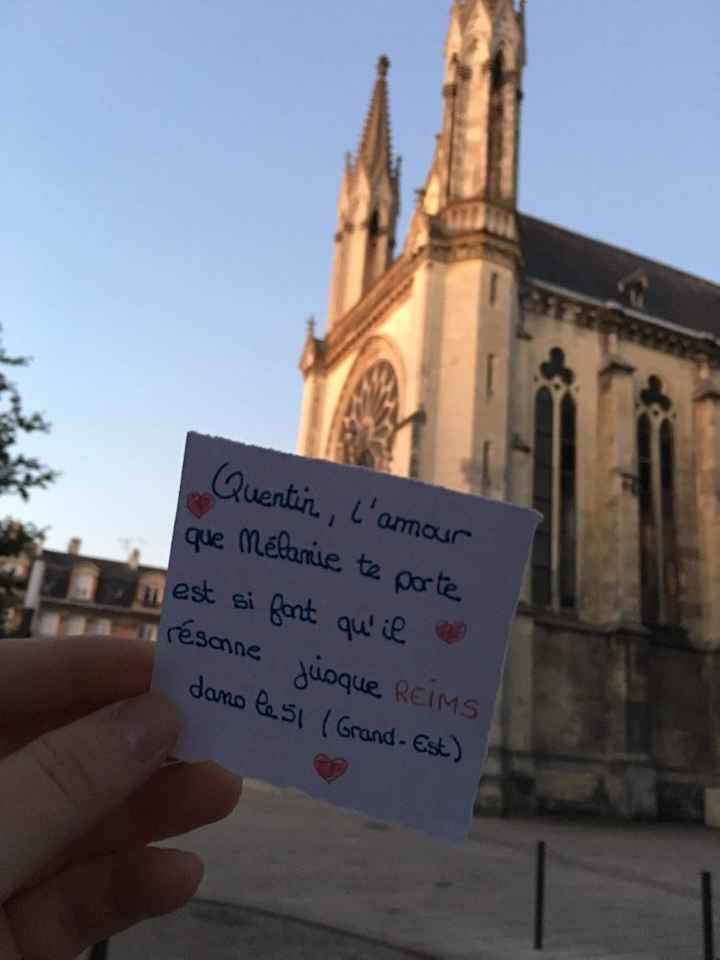 Quentin, l'amour
que Mélanie te porte
est si font qu'il
résonne jusque REIMS
dans le 51 (Grand-Est)